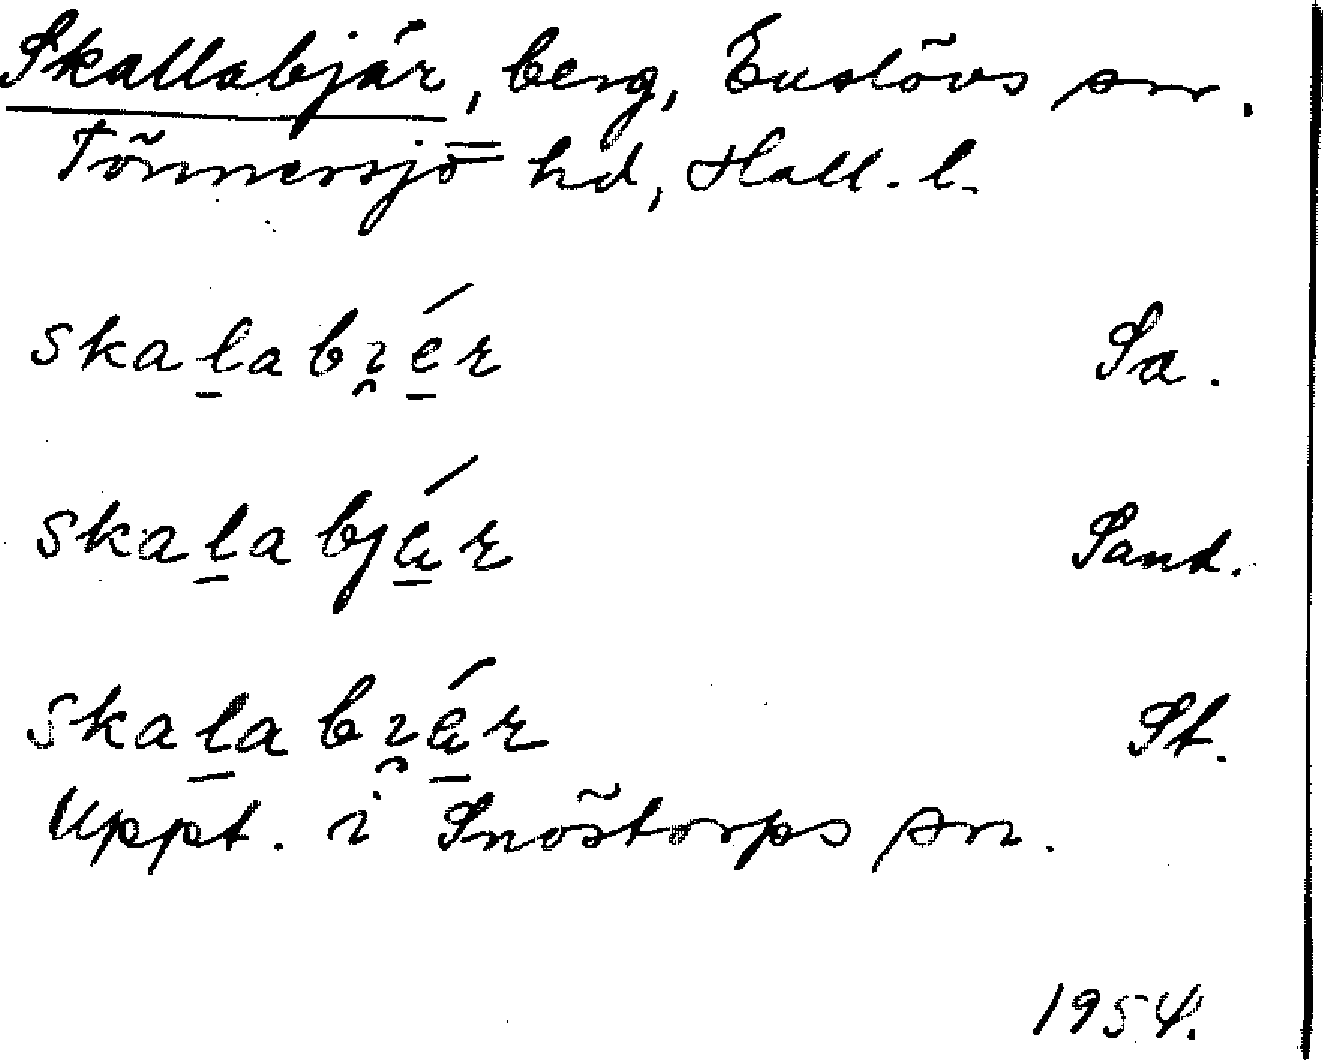 Skallabjär, berg, Enslövs sn.
Tönnersjö hd, Hall. l.
skalabi̯ér Sa.
skalabjǽr Sand.
skalabi̯ǽr St.
Uppt. i Snöstorps sn.
1954.